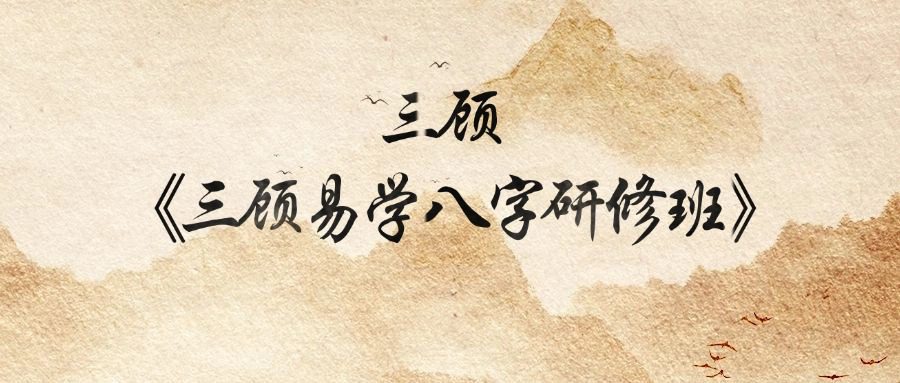 三顾
《三顾易学八字研修班》